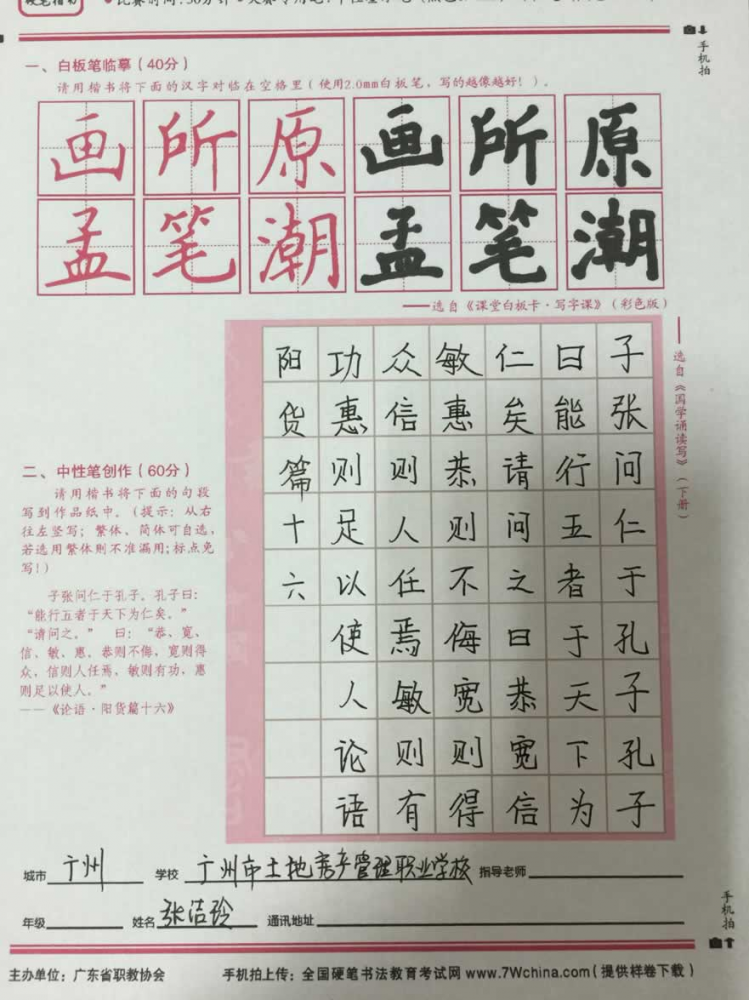 一、白板笔临摹（40分）
请用楷书将下面的汉字对临在空格里（使用2.0mm白板笔，写的越像越好！）。
画所原画所原
孟笔潮孟笔潮
——选自《课堂白板卡·写字课》（彩色版）
——选自《国学诵读写》（下册）
子张问仁于孔子孔子
曰能行五者于天下为
仁矣请问之曰恭宽信
敏惠恭则不侮宽则得
众信则人任焉敏则有
功惠则足以使人论语
阳货篇十六
二、中性笔创作（60分）
请用楷书将下面的句段
写到作品纸中。（提示：从右
往左竖写；繁体、简体可自选，
若选用繁体则不准漏用；标点免
写！）
子张问仁于孔子。孔子曰：
“能行五者于天下为仁矣。”
“请问之。” 曰：“恭、宽、
信、敏、惠。恭则不侮，宽则得
众，信则人任焉、敏则有功，惠
则足以使人。”
——《论语·阳货篇十六》
城市 广州 学校 广州市土地房产管理职业学校 指导老师
年级 姓名 张洁玲 通讯地址
手机拍
手机拍
主办单位：广东省职教协会 手机拍上传：全国硬笔书法教育考试网 www.7Wchina.com（提供样卷下载）